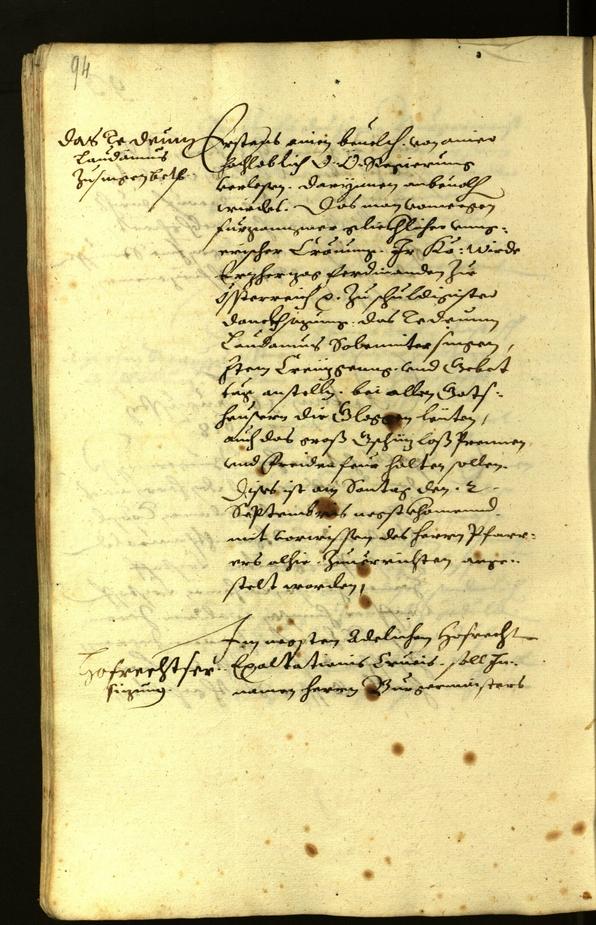 94
das Te deum
Laudamus
Zusingen betr.
Erstens einen beuelch. von ainer
hochloblich O. O. Regierung
verlesen. darinnen anbeuolhen
wirdet. Das man von wegen
fürganngner glickhlicher vng-
erischer Crönung. Ir Kö: wirde
Ertzhertzog Ferdinanden zu
Össterreich &. Zu schuldigister
danckhsagung. das Te deum
Laudamus Solemniter singen,
Item Creuzgeng. vnd Gebet
tag anstelln. bei allen Gots-
heusern die Gloggen leuten,
auch das groß Gschütz loß Prennen
vnd Freiden feur halten sollen.
Dises ist am Sontag den .2.
Septembris negst khomend
mit vorwissen des herrn Pfarr-
ers alhie. Zuuerrichten ange-
stelt worden,
Hofrechtser-
sizung.
Im negsten Adelichen Hofrecht
Exaltationis Crucis. soll In-
namen herrn Burgermaisters